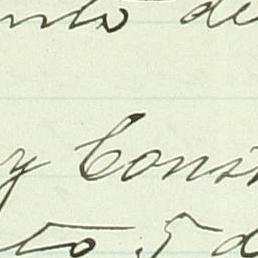 nto de
y Const
to 5 d